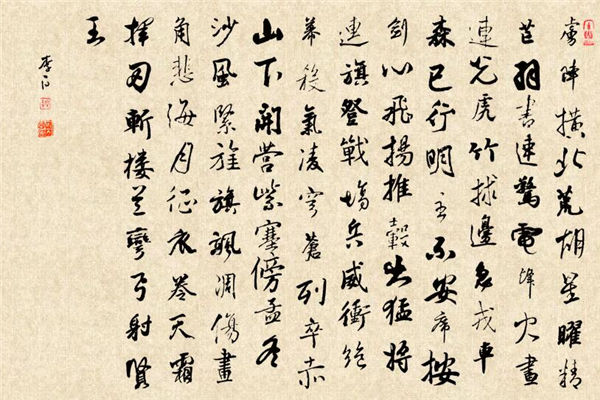 虜陣横北荒胡星曜精
芒羽書速驚電烽火晝
連光虎竹捄邊急戎車
森已行明主不安席按
劍心飛揚推轂出猛將
連旗登戰場兵威衝絶
幕殺氣凌穹蒼列卒赤
山下開營紫塞傍孟冬
沙風緊旌旗颯凋傷畫
角悲海月征衣卷天霜
揮刃斬樓蘭彎弓射賢
王
李白